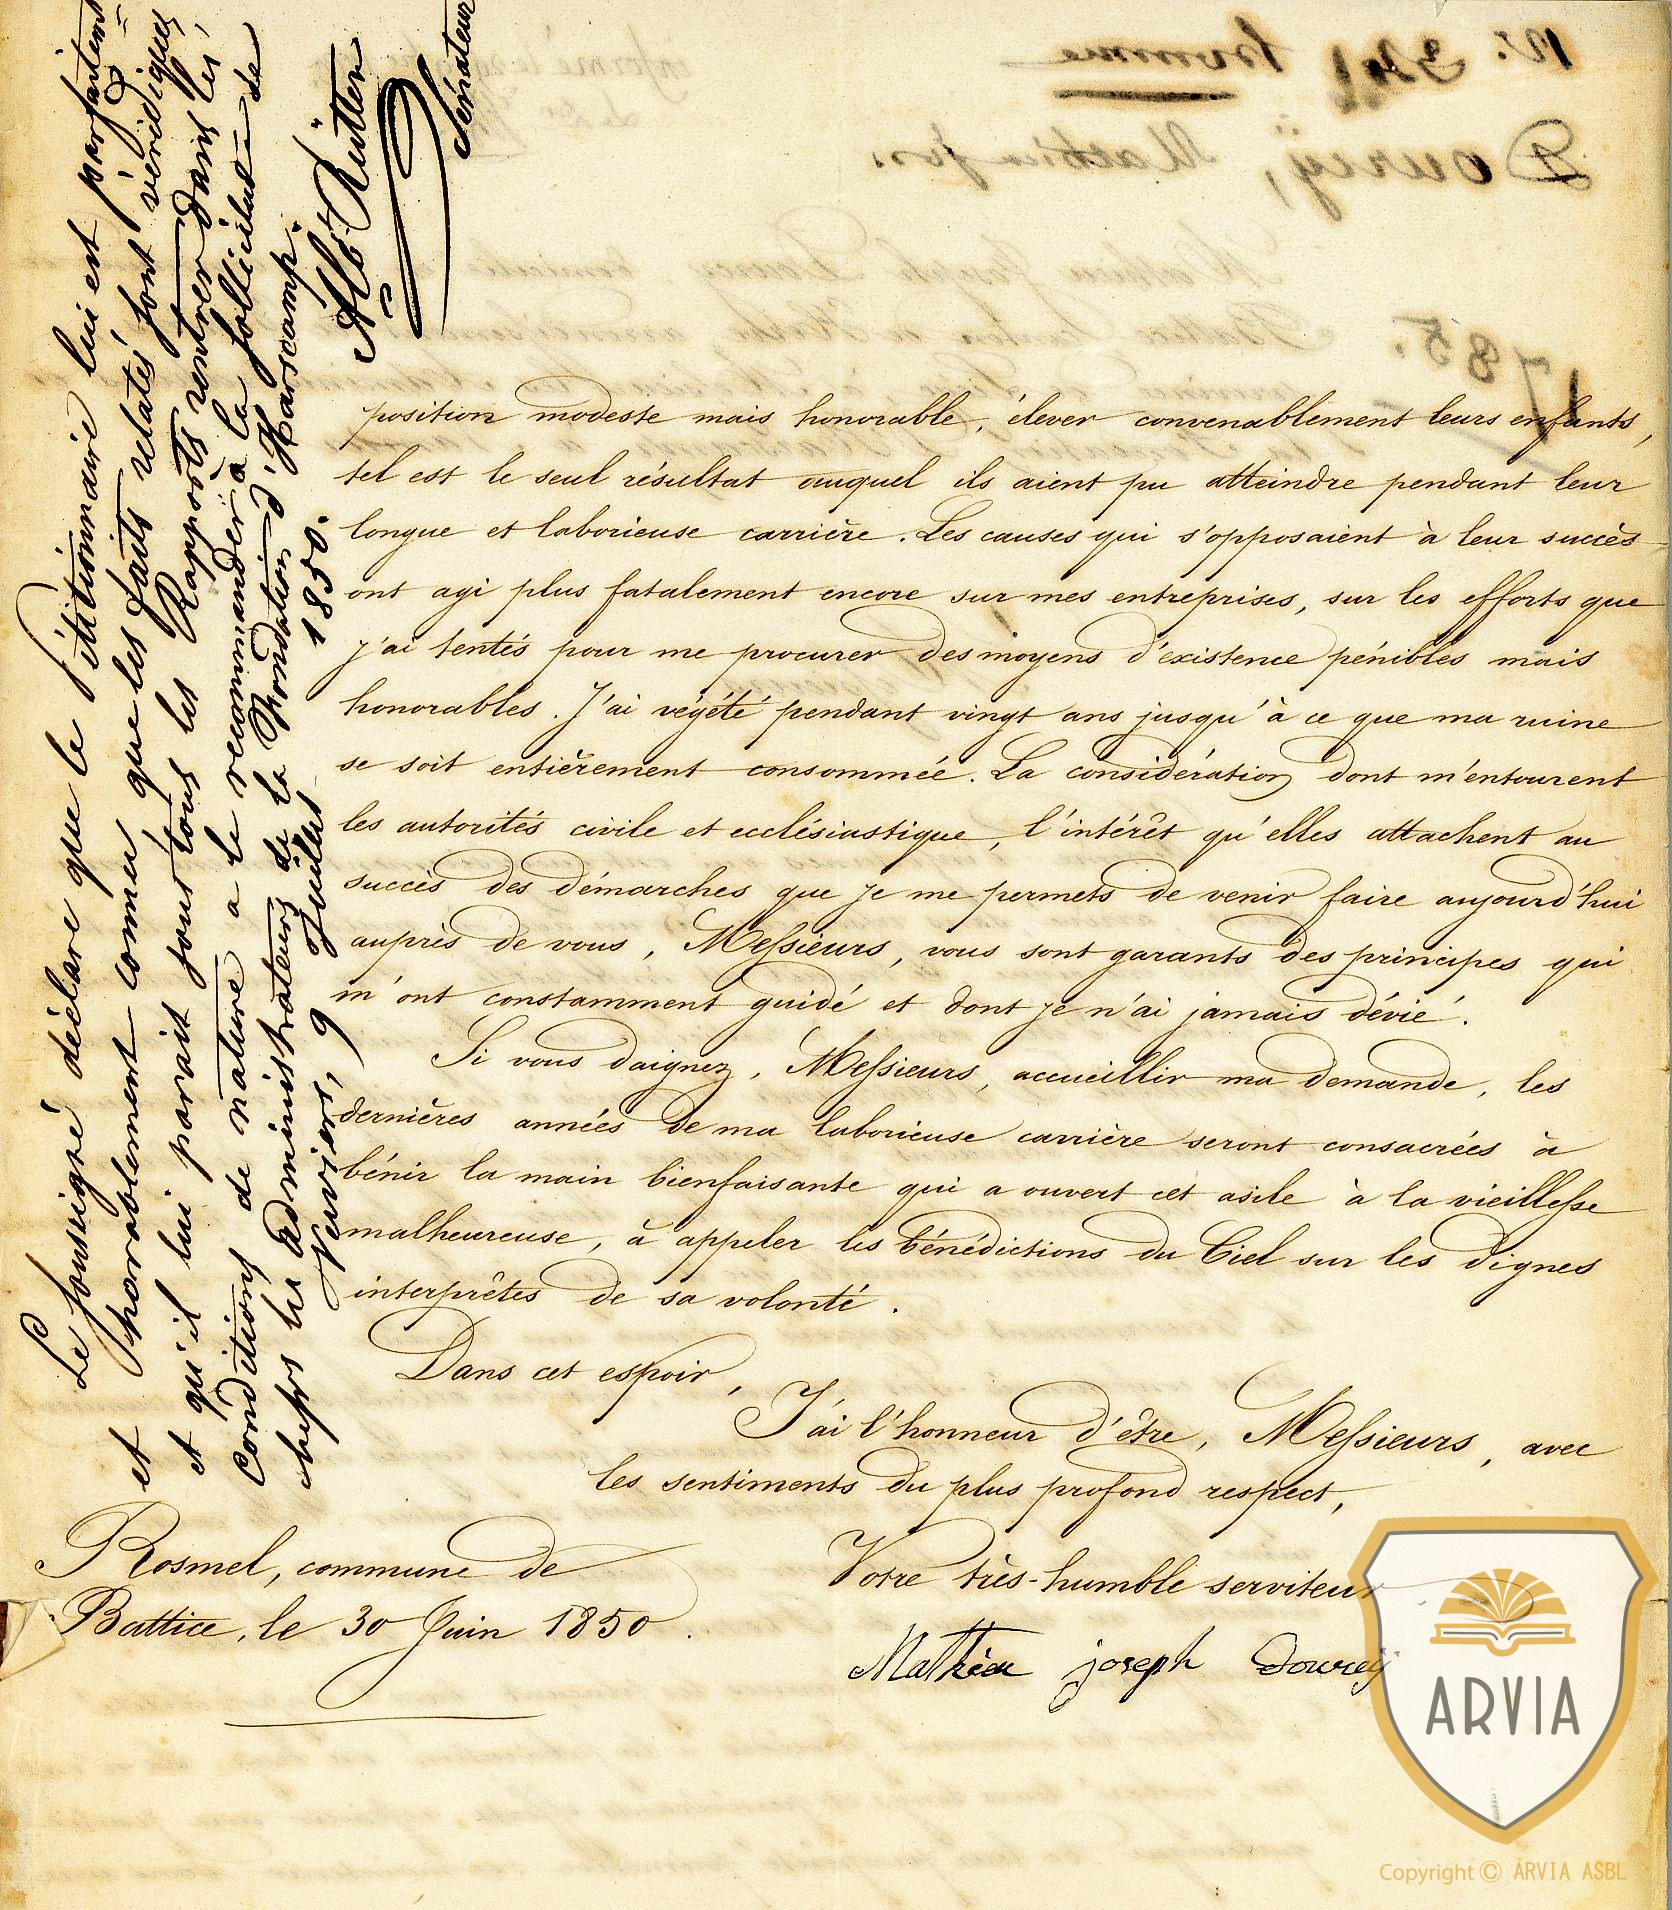 position modeste mais honorable, élever convenablement leurs enfants,
tel est le seul résultat auquel ils aient pu atteindre pendant leur
longue et laborieuse carrière. Les causes qui s'opposaient à leur succès
ont agi plus fatalement encore sur mes entreprises, sur les efforts que
j'ai tentés pour me procurer des moyens d'existence pénibles mais
honorables. J'ai végété pendant vingt ans jusqu'à ce que ma ruine
se soit entièrement consommée. La considération dont m'entourent
les autorités civile et ecclésiastique, l'intérêt qu'elles attachent au
succès des démarches que je me permets de venir faire aujourd'hui
auprès de vous, Messieurs, vous sont garants des principes qui
m'ont constamment guidé et dont je n'ai jamais dévié.
Si vous daignez, Messieurs, accueillir ma demande, les
dernières années de ma laborieuse carrière seront consacrées à
bénir la main bienfaisante qui a ouvert cet asile à la vieillesse
malheureuse, à appeler les bénédictions du Ciel sur les dignes
interprêtes de sa volonté.
Dans cet espoir,
J'ai l'honneur d'être, Messieurs, avec
les sentiments du plus profond respect,
Votre très-humble serviteur
Mathieu joseph Dourcÿ
Rosmel, commune de
Battice, le 30 Juin 1850.
Le soussigné déclare que le Pétitionnaire lui est parfaitement
et honorablement connu, que les faits relatés sont véridiques
et qu'il lui parait sous tous les Rapports rentrer dans les
conditions de nature à le recommander à la sollicitude de
messrs les administrateurs de la Fondation d'Harscamp.
Verviers, 9 Juillet 1850.
Alb. Rütten
Sénateur
No. 
Dourcÿ, Mathieu jos.
1785.
ARVIA
Copyright © ARVIA ASBL